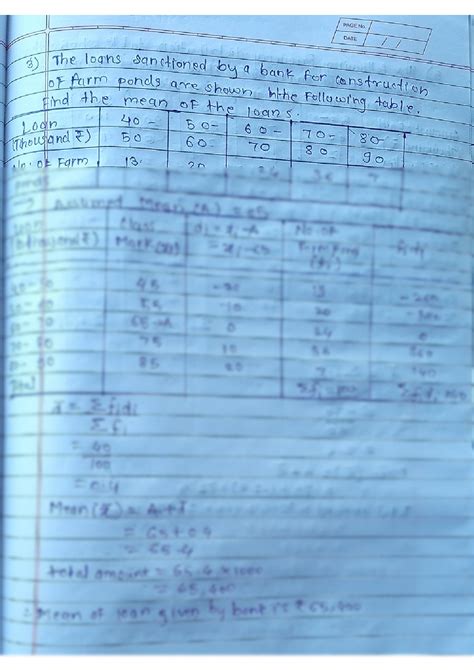 PAGE No.
DATE / /
3) The loans sanctioned by a bank for construction
of farm ponds are shown in the following table.
Find the mean of the loans.
Loan (Thousand ₹) 40-50 50-60 60-70 70-80 80-90
No. of Farm 13 20 24 36 7
→ Assumed Mean (A) = 65
Class Mark (xi) di = xi - A = xi - 65 No. of (fi) fidi
45 -20 13 -260
55 -10 20 -200
65→A 0 24 0
75 10 36 360
85 20 7 140
Total Σfi
= Σfidi / Σfi
= 40 / 100
= 0.4
Mean (x̄) = A + d̄
= 65 + 0.4
= 65.4
total amount = 65.4 × 1000
= 65,400
∴ Mean of loan given by bank is ₹ 65,400